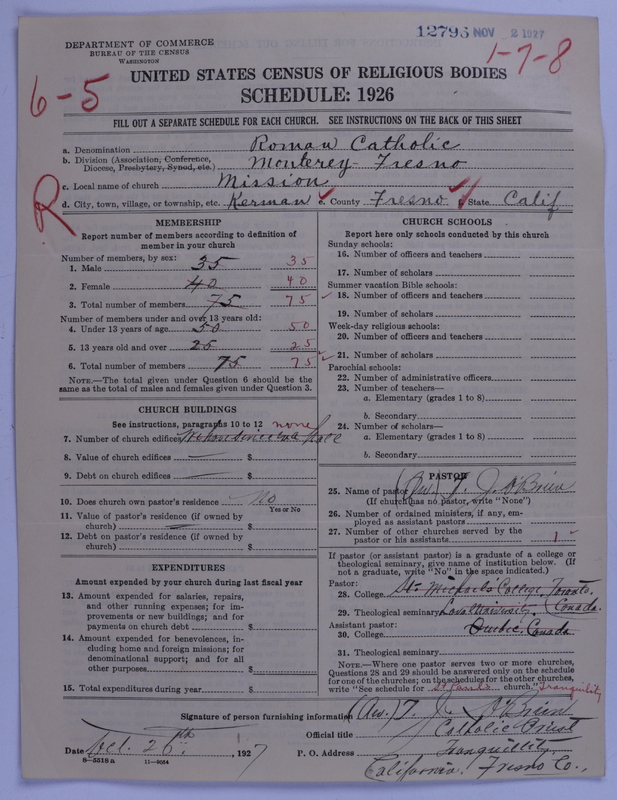 12796 NOV 2 1927
DEPARTMENT OF COMMERCE
BUREAU OF THE CENSUS
WASHINGTON
1-7-8
6-5
UNITED STATES CENSUS OF RELIGIOUS BODIES
SCHEDULE: 1926
FILL OUT A SEPARATE SCHEDULE FOR EACH CHURCH. SEE INSTRUCTIONS ON THE BACK OF THIS SHEET
a. Denomination Roman Catholic
b. Division (Association, Conference, Diocese, Presbytery, Synod, etc.) Monterey-Fresno
c. Local name of church Mission
R
d. City, town, village, or township, etc. Kerman e. County Fresno f. State Calif
MEMBERSHIP
Report number of members according to definition of
member in your church
Number of members, by sex:
1. Male 35 35
2. Female 40 40
3. Total number of members 75 75
Number of members under and over 13 years old:
4. Under 13 years of age 50 50
5. 13 years old and over 25 25
6. Total number of members 75 75
NOTE.—The total given under Question 6 should be the
same as the total of males and females given under Question 3.
CHURCH BUILDINGS
See instructions, paragraphs 10 to 12 none
7. Number of church edifices
8. Value of church edifices $
9. Debt on church edifices $
10. Does church own pastor's residence No
Yes or No
11. Value of pastor's residence (if owned by
church) $
12. Debt on pastor's residence (if owned by
church) $
EXPENDITURES
Amount expended by your church during last fiscal year
13. Amount expended for salaries, repairs,
and other running expenses; for im-
provements or new buildings; and for
payments on church debt $
14. Amount expended for benevolences, in-
cluding home and foreign missions; for
denominational support; and for all
other purposes $
15. Total expenditures during year $
CHURCH SCHOOLS
Report here only schools conducted by this church
Sunday schools:
16. Number of officers and teachers
17. Number of scholars
Summer vacation Bible schools:
18. Number of officers and teachers
19. Number of scholars
Week-day religious schools:
20. Number of officers and teachers
21. Number of scholars
Parochial schools:
22. Number of administrative officers
23. Number of teachers—
a. Elementary (grades 1 to 8)
b. Secondary
24. Number of scholars—
a. Elementary (grades 1 to 8)
b. Secondary
PASTOR
25. Name of pastor (Rev) T. J. O'Brien
(If church has no pastor, write "None")
26. Number of ordained ministers, if any, em-
ployed as assistant pastors
27. Number of other churches served by the
pastor or his assistants 1
If pastor (or assistant pastor) is a graduate of a college or
theological seminary, give name of institution below. (If
not a graduate, write "No" in the space indicated.)
Pastor:
28. College St. Michael's College, Toronto.
29. Theological seminary Laval University, (Canada.
Assistant pastor: Quebec, Canada
30. College
31. Theological seminary
NOTE.—Where one pastor serves two or more churches,
Questions 28 and 29 should be answered only on the schedule
for one of the churches; on the schedules for the other churches,
write "See schedule for St Paul's church." Tranquility
Signature of person furnishing information (Rev.) T. J. O'Brien
Official title Catholic Priest
Date Oct. 26th, 1927 P. O. Address Tranquillity,
8—5518 a 11—9034 California. Fresno Co.,